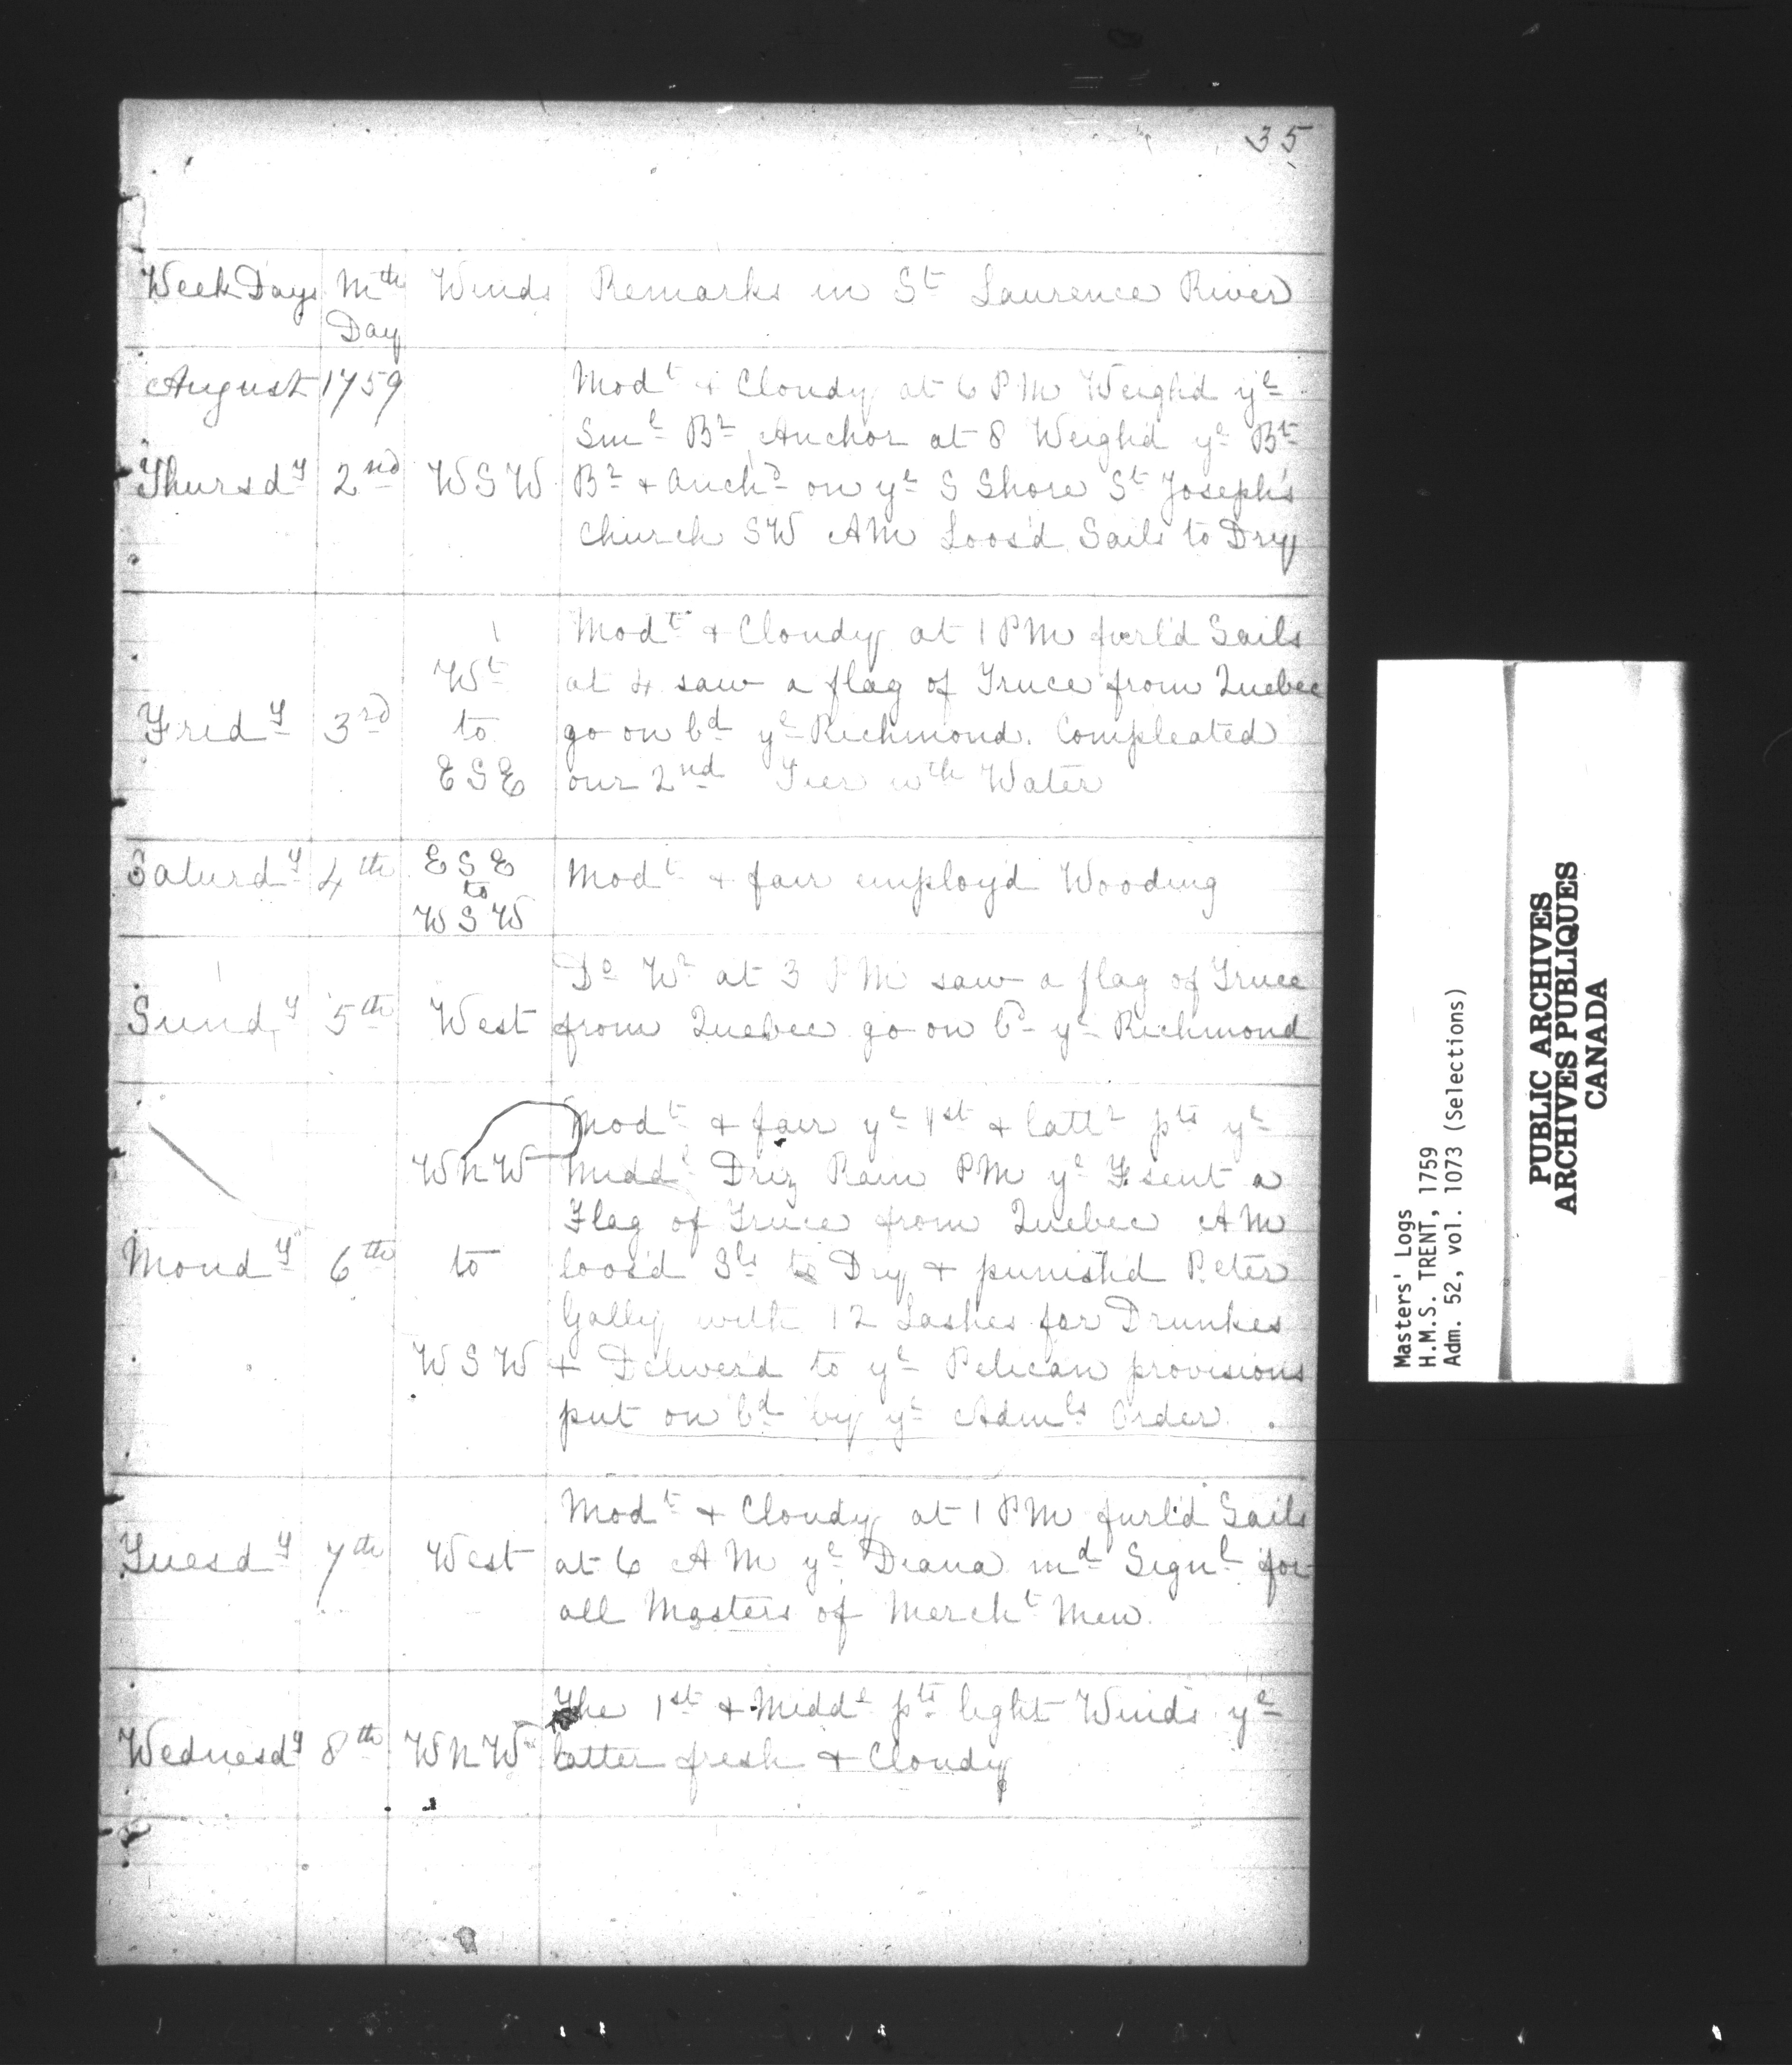 35
Week Days Mth Day Winds Remarks in St Laurence River
August 1759
Modt & Cloudy at 6 PM Weigh'd ye
Sml Br Anchor at 8 Weigh'd ye Bt
Thursdy 2nd WSW Br & Anchd on ye S Shore St Joseph's
Church SW AM Loos'd Sails to Dry
Modt & Cloudy at 1 PM furl'd Sails
Wt at 4 saw a flag of Truce from Quebec
Fridy 3rd to go on bd ye Richmond. Compleated
ESE our 2nd Tier wth Water
Saturdy 4th ESE
to
WSW
Modt & fair employ'd Wooding
Do Wr at 3 PM saw a flag of Truce
Sundy 5th West from Quebec go on bd ye Richmond
Modt & fair ye 1st & lattr pts ye
WNW Middl Driz Rain PM ye F sent a
Flag of Truce from Quebec AM
Mondy 6th to loos'd Sls to Dry & punish'd Peter
Gally with 12 Lashes for Drunkes
WSW & Deliver'd to ye Pelican provisions
put on bd by ye Admls Order.
Modt & Cloudy at 1 PM furl'd Sails
Tuesdy 7th West at 6 AM ye Diana md Signl for
all Masters of Mercht Men.
The 1st & Middl pts light Winds ye
Wednesdy 8th WNW latter fresh & Cloudy
Masters' Logs
H.M.S. TRENT, 1759
Adm. 52, vol. 1073 (Selections)
PUBLIC ARCHIVES
ARCHIVES PUBLIQUES
CANADA